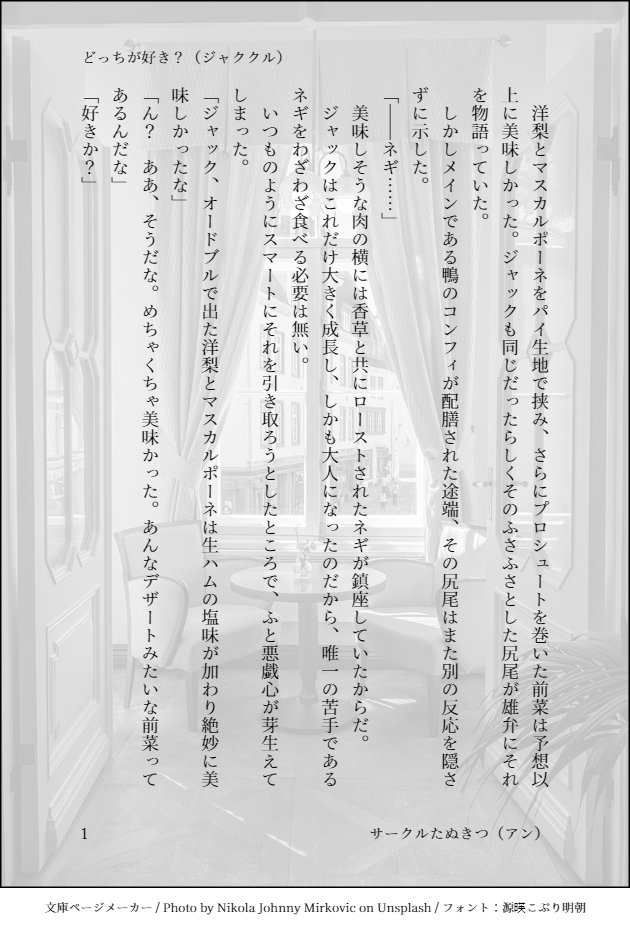 どっちが好き？（ジャククル）
　洋梨とマスカルポーネをパイ生地で挟み、さらにプロシュートを巻いた前菜は予想以
上に美味しかった。ジャックも同じだったらしくそのふさふさとした尻尾が雄弁にそれ
を物語っていた。
　しかしメインである鴨のコンフィが配膳された途端、その尻尾はまた別の反応を隠さ
ずに示した。
「――ネギ……」
　美味しそうな肉の横には香草と共にローストされたネギが鎮座していたからだ。
　ジャックはこれだけ大きく成長し、しかも大人になったのだから、唯一の苦手である
ネギをわざわざ食べる必要は無い。
　いつものようにスマートにそれを引き取ろうとしたところで、ふと悪戯心が芽生えて
しまった。
「ジャック、オードブルで出た洋梨とマスカルポーネは生ハムの塩味が加わり絶妙に美
味しかったな」
「ん？　ああ、そうだな。めちゃくちゃ美味かった。あんなデザートみたいな前菜って
あるんだな」
「好きか？」
サークルたぬきつ（アン）
1
文庫ページメーカー / Photo by Nikola Johnny Mirkovic on Unsplash / フォント：源暎こぶり明朝